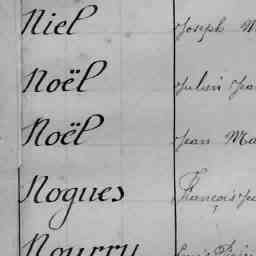 Niel Joseph M
Noël Julien Jea
Noël Jean Ma
Nogues François Je
Nourry Louis Pierre